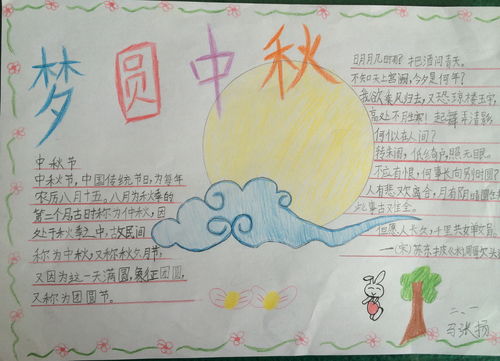 梦圆中秋
中秋节
中秋节,中国传统节日,为每年
农历八月十五。八月为秋季的
第二个月古时称为仲秋,因
处于秋季之中,故民间
称为中秋,又称秋夕月节,
又因为这一天满圆,象征团圆,
又称为团圆节。
明月几时有?把酒问青天。
不知天上宫阙,今夕是何年?
我欲乘风归去,又恐琼楼玉宇,
高处不胜寒!起舞弄清影
何似在人间?
转朱阁,低绮户,照无眠。
不应有恨,何事长向别时圆?
人有悲欢离合,月有阴晴圆缺
此事古难全。
但愿人长久,千里共婵娟。
—(宋)苏东坡《水调歌头
二、一
张扬